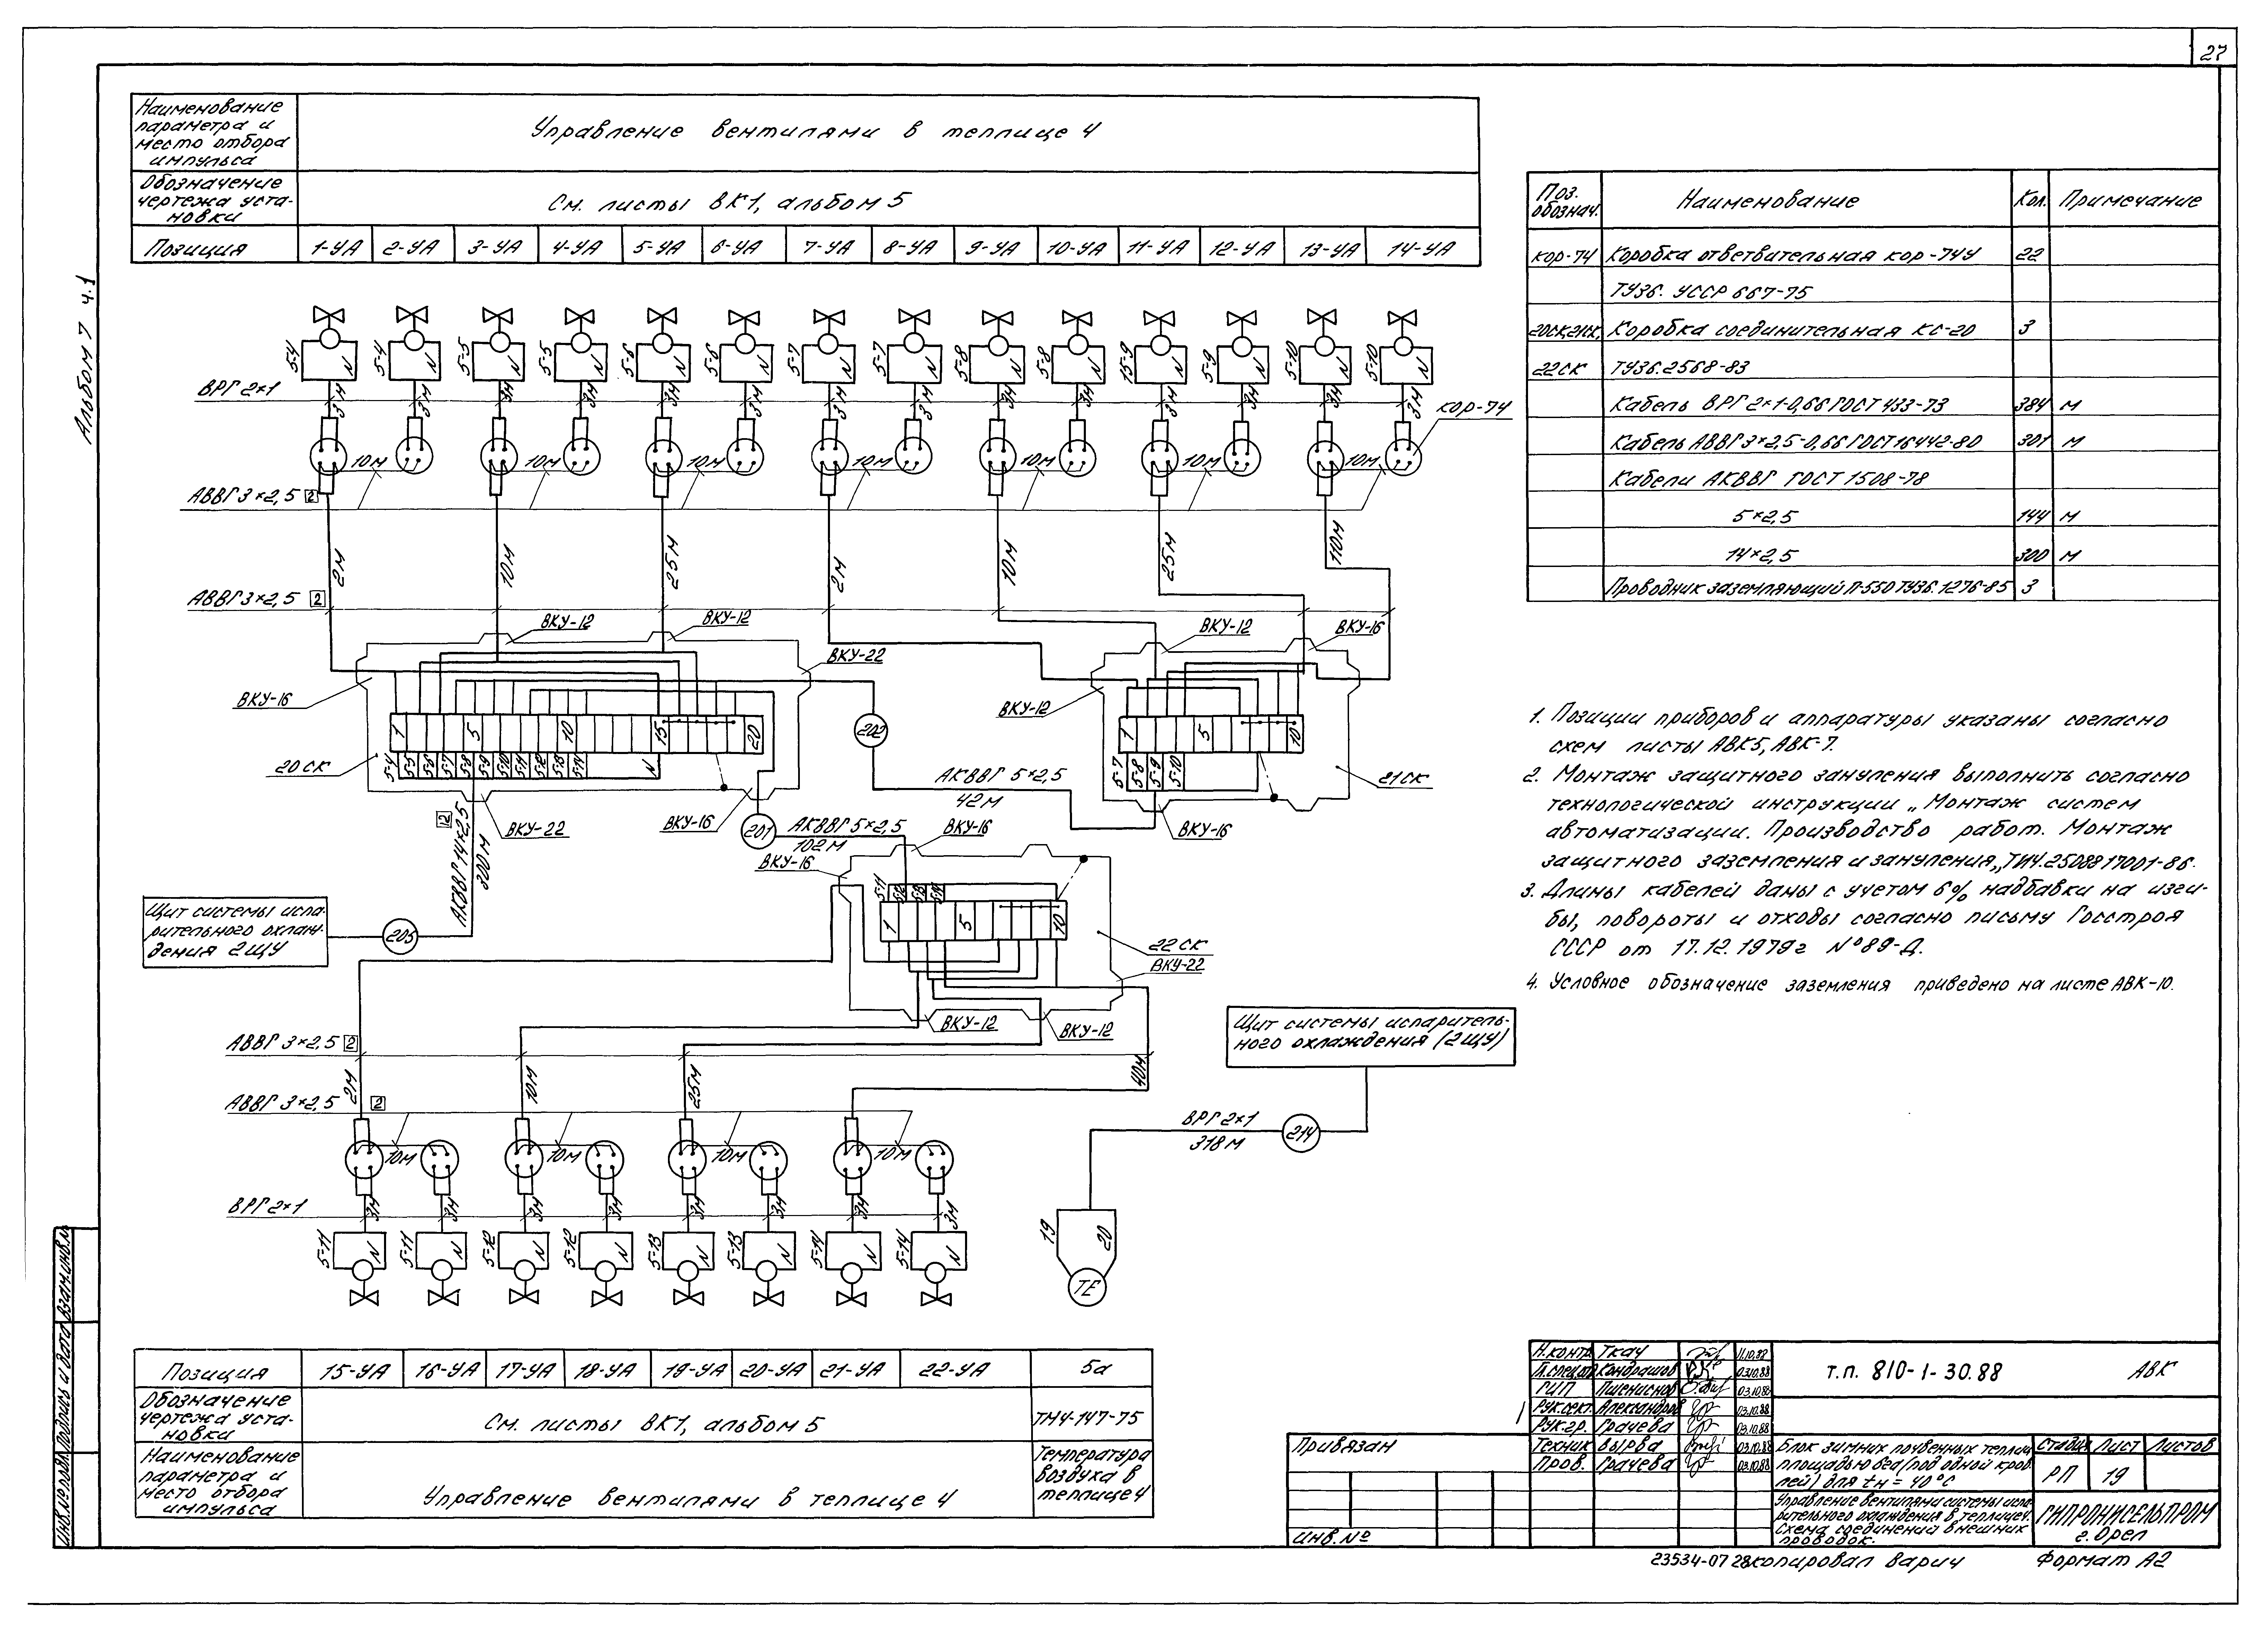 27
Альбом 7 ч.1
Наименование
параметра и
место отбора
импульса
Управление вентилями в теплице 4
Обозначение
чертежа уста-
новки
См. листы ВК1, альбом 5
Позиция 1-УА 2-УА 3-УА 4-УА 5-УА 6-УА 7-УА 8-УА 9-УА 10-УА 11-УА 12-УА 13-УА 14-УА
5-4 5-4 5-5 5-5 5-6 5-6 5-7 5-7 5-8 5-8 15-9 5-9 5-10 5-10
N N N N N N N N N N N N N N
ВРГ 2×1
3м 3м 3м 3м 3м 3м 3м 3м 3м 3м 3м 3м 3м 3м
КОР-74
10м 10м 10м 10м 10м 10м 10м
АВВГ 3×2,5 2
2м 10м 25м 2м 10м 25м 110м
АВВГ 3×2,5 2
ВКУ-12 ВКУ-12 ВКУ-12 ВКУ-16
ВКУ-22
ВКУ-16
ВКУ-12
1 5 10 15 20
202
1 5 10
20СК
5-4 5-5 5-6 5-7 5-8 5-9 5-10 5-11 5-12 5-13 5-14 N
5-7 5-8 5-9 5-10
21СК
АКВВГ 5×2,5
42м
12
АКВВГ 14×2,5
300м
ВКУ-22
ВКУ-16
201
АКВВГ 5×2,5
102м
ВКУ-16
ВКУ-16
ВКУ-16
5-11 5-12 5-13 5-14
1 5 10
22СК
ВКУ-22
ВКУ-12 ВКУ-12
Щит системы испа-
рительного охлаж-
дения 2ЩУ
203
АВВГ 3×2,5 2
2м 10м 25м 40м
АВВГ 3×2,5 2
10м 10м 10м 10м
ВРГ 2×1
3м 3м 3м 3м 3м 3м 3м 3м
5-11 5-11 5-12 5-12 5-13 5-13 5-14 5-14
N N N N N N N N
Щит системы испаритель-
ного охлаждения (2ЩУ)
ВРГ 2×1
318м
214
19 20
TE
Позиция 15-УА 16-УА 17-УА 18-УА 19-УА 20-УА 21-УА 22-УА 5а
Обозначение
чертежа уста-
новки
См. листы ВК1, альбом 5
ТМ4-147-75
Наименование
параметра и
место отбора
импульса
Управление вентилями в теплице 4
Температура
воздуха в
теплице 4
Поз.
обознач. Наименование Кол. Примечание
КОР-74 Коробка ответвительная кор-74У 22
ТУ36. УССР 667-75
20СК,21СК, Коробка соединительная КС-20 3
22СК ТУ36.2568-83
Кабель ВРГ 2×1-0,66 ГОСТ 433-73 384 м
Кабель АВВГ 3×2,5-0,66 ГОСТ 16442-80 301 м
Кабели АКВВГ ГОСТ 1508-78
5×2,5 144 м
14×2,5 300 м
Проводник заземляющий П-550 ТУ36.1276-85 3
1. Позиции приборов и аппаратуры указаны согласно
схем листы АВК5, АВК-7.
2. Монтаж защитного зануления выполнить согласно
технологической инструкции „Монтаж систем
автоматизации. Производство работ. Монтаж
защитного заземления и зануления„ ТИ4.25088 17001-86.
3. Длины кабелей даны с учетом 6% надбавки на изги-
бы, повороты и отходы согласно письму Госстроя
СССР от 17.12.1979г №89-Д.
4. Условное обозначение заземления приведено на листе АВК-10.
Н.контр. Ткач 11.10.88
Гл.спец.отд. Кондрашов 03.10.88
ГИП Пшениснов 03.10.88
Рук.сект. Александров 03.10.88
Рук.гр. Грачева 03.10.88
Техник Вырва 03.10.88
Пров. Грачева 03.10.88
т.п. 810-1-30.88 АВК
Блок зимних почвенных теплиц
площадью 6га (под одной кров-
лей) для tн = 40°С
Стадия Лист Листов
РП 19
Управление вентилями системы испа-
рительного охлаждения в теплице 4.
Схема соединений внешних
проводок.
ГИПРОНИСЕЛЬПРОМ
г. Орел
Привязан
Инв.№
Инв.№ подл. Подпись и дата Взам.инв.№
23534-07 28 Копировал Варич Формат А2